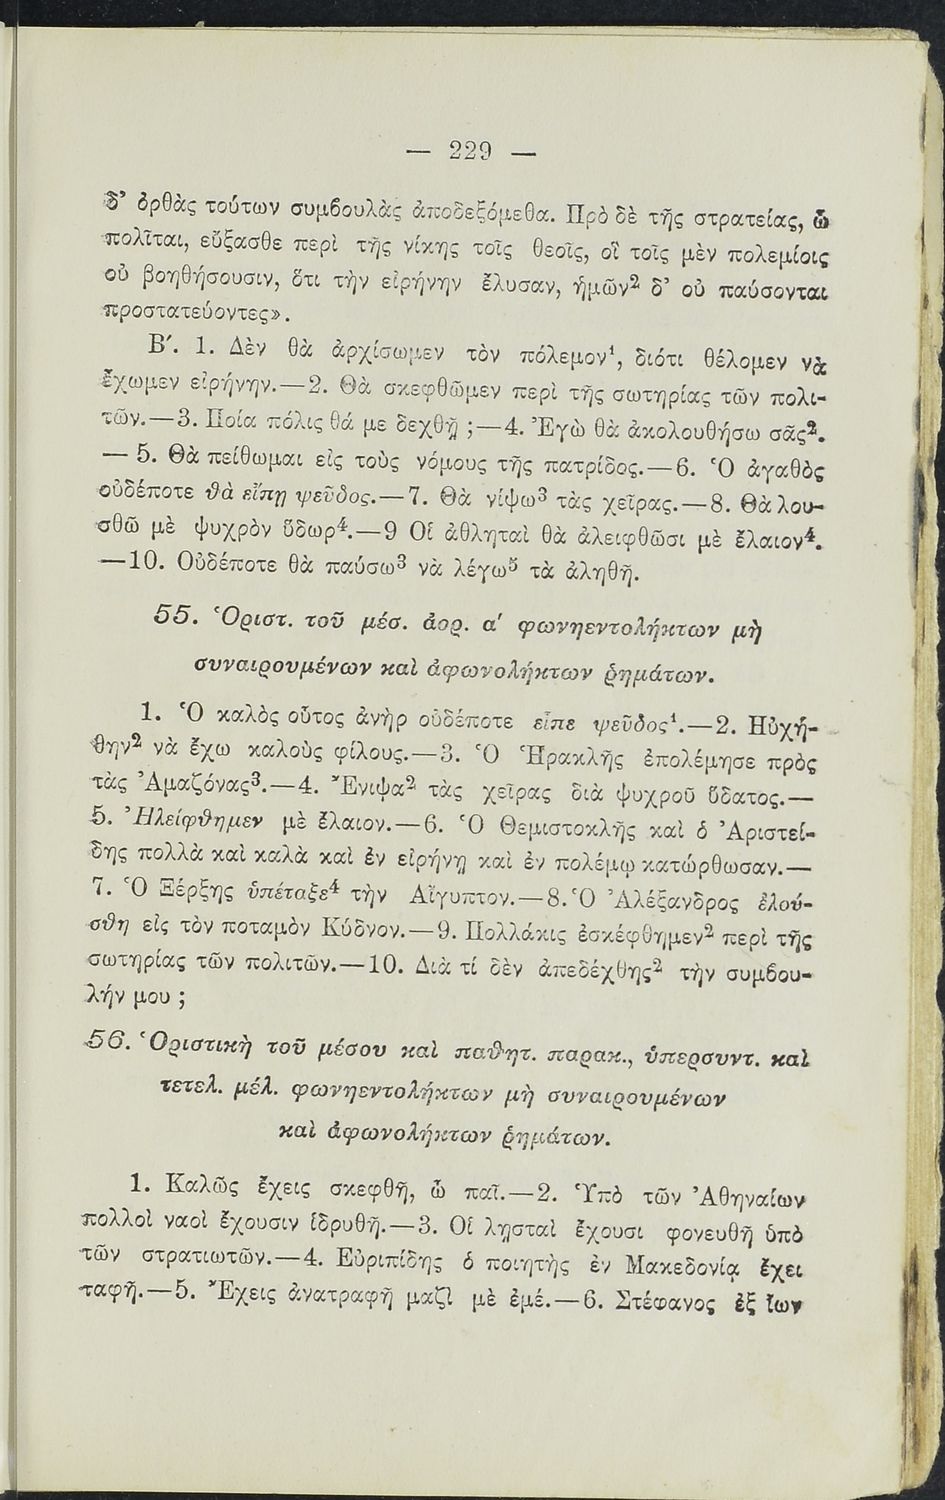 — 229 —
δ’ ὀρθὰς τούτων συμβουλὰς ἀποδεξόμεθα. Πρὸ δὲ τῆς στρατείας, ὦ
πολῖται, εὔξασθε περὶ τῆς νίκης τοῖς θεοῖς, οἳ τοῖς μὲν πολεμίοις
οὐ βοηθήσουσιν, ὅτι τὴν εἰρήνην ἔλυσαν, ἡμῶν² δ’ οὐ παύσονται
προστατεύοντες».
Β΄. 1. Δὲν θὰ ἀρχίσωμεν τὸν πόλεμον¹, διότι θέλομεν νὰ
ἔχωμεν εἰρήνην.—2. Θὰ σκεφθῶμεν περὶ τῆς σωτηρίας τῶν πολι-
τῶν.—3. Ποία πόλις θά με δεχθῇ ;—4. Ἐγὼ θὰ ἀκολουθήσω σᾶς².
— 5. Θὰ πείθωμαι εἰς τοὺς νόμους τῆς πατρίδος.—6. Ὁ ἀγαθὸς
οὐδέποτε θὰ εἴπῃ ψεῦδος.—7. Θὰ νίψω³ τὰς χεῖρας.—8. Θὰ λου-
σθῶ μὲ ψυχρὸν ὕδωρ⁴.—9 Οἱ ἀθληταὶ θὰ ἀλειφθῶσι μὲ ἔλαιον⁴.
—10. Οὐδέποτε θὰ παύσω³ νὰ λέγω⁵ τὰ ἀληθῆ.
55. Ὁριστ. τοῦ μέσ. ἀορ. α' φωνηεντολήκτων μὴ
συναιρουμένων καὶ ἀφωνολήκτων ῥημάτων.
1. Ὁ καλὸς οὗτος ἀνὴρ οὐδέποτε εἶπε ψεῦδος¹.—2. Ηὐχή-
θην² νὰ ἔχω καλοὺς φίλους.—3. Ὁ Ἡρακλῆς ἐπολέμησε πρὸς
τὰς Ἀμαζόνας³.—4. Ἔνιψα² τὰς χεῖρας διὰ ψυχροῦ ὕδατος.—
5. Ἠλείφθημεν μὲ ἔλαιον.—6. Ὁ Θεμιστοκλῆς καὶ ὁ Ἀριστεί-
δης πολλὰ καὶ καλὰ καὶ ἐν εἰρήνῃ καὶ ἐν πολέμῳ κατώρθωσαν.—
7. Ὁ Ξέρξης ὑπέταξε⁴ τὴν Αἴγυπτον.—8. Ὁ Ἀλέξανδρος ἐλού-
σθη εἰς τὸν ποταμὸν Κύδνον.—9. Πολλάκις ἐσκέφθημεν² περὶ τῆς
σωτηρίας τῶν πολιτῶν.—10. Διὰ τί δὲν ἀπεδέχθης² τὴν συμβου-
λήν μου ;
56. Ὁριστικὴ τοῦ μέσου καὶ παθητ. παρακ., ὑπερσυντ. καὶ
τετελ. μέλ. φωνηεντολήκτων μὴ συναιρουμένων
καὶ ἀφωνολήκτων ῥημάτων.
1. Καλῶς ἔχεις σκεφθῆ, ὦ παῖ.—2. Ὑπὸ τῶν Ἀθηναίων
πολλοὶ ναοὶ ἔχουσιν ἱδρυθῆ.—3. Οἱ λῃσταὶ ἔχουσι φονευθῆ ὑπὸ
τῶν στρατιωτῶν.—4. Εὐριπίδης ὁ ποιητὴς ἐν Μακεδονίᾳ ἔχει
ταφῆ.—5. Ἔχεις ἀνατραφῆ μαζὶ μὲ ἐμέ.—6. Στέφανος ἐξ ἴων